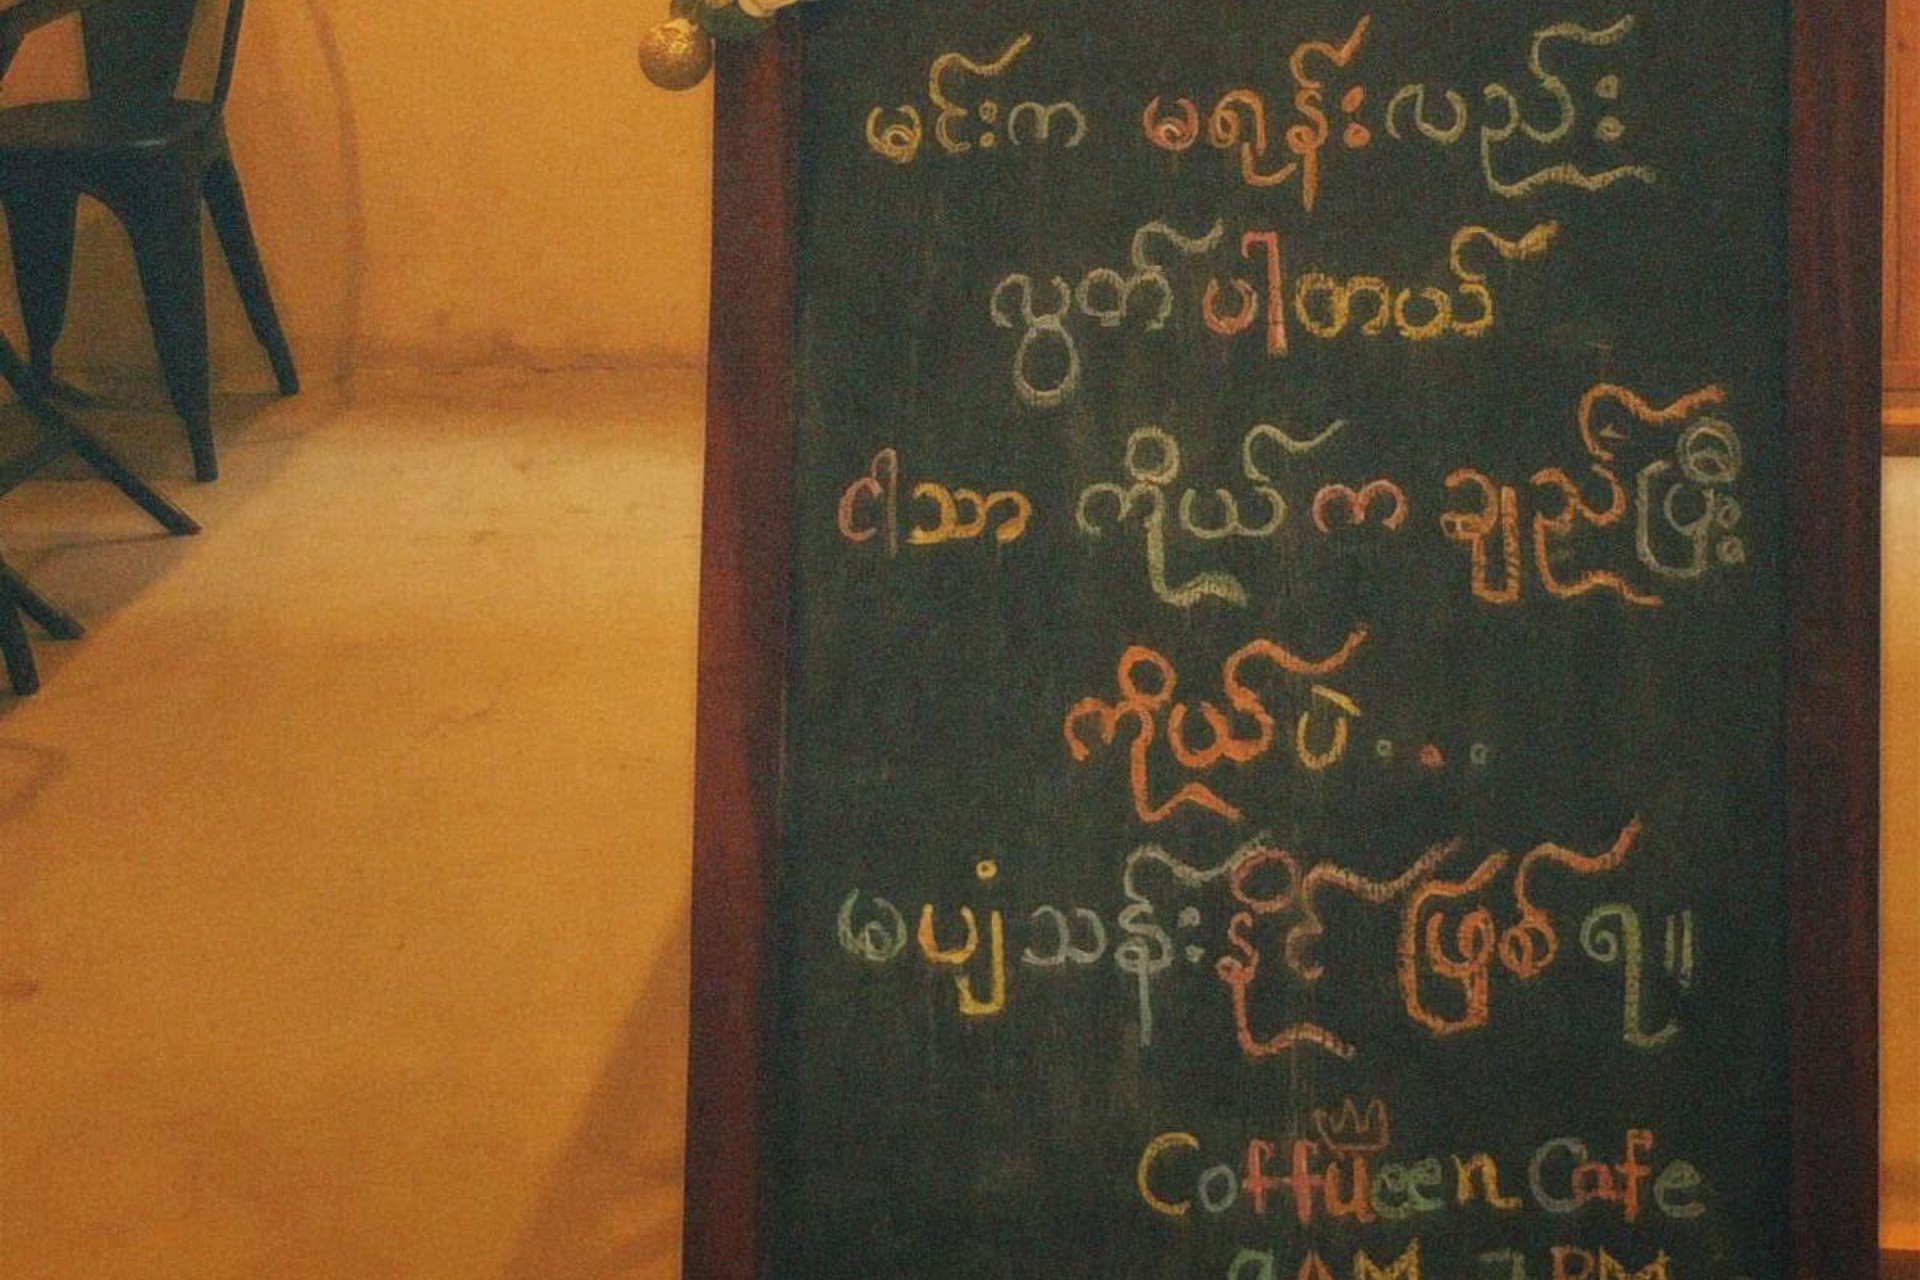 မင်းက မရုန်းလည်း
လွတ်ပါတယ်
ငါသာ ကိုယ်ကချည်ပြီး
ကိုယ်ပဲ...
မပျံသန်းနိုင်ဖြစ်ရ။
Coffueen Cafe
9AM - 7PM